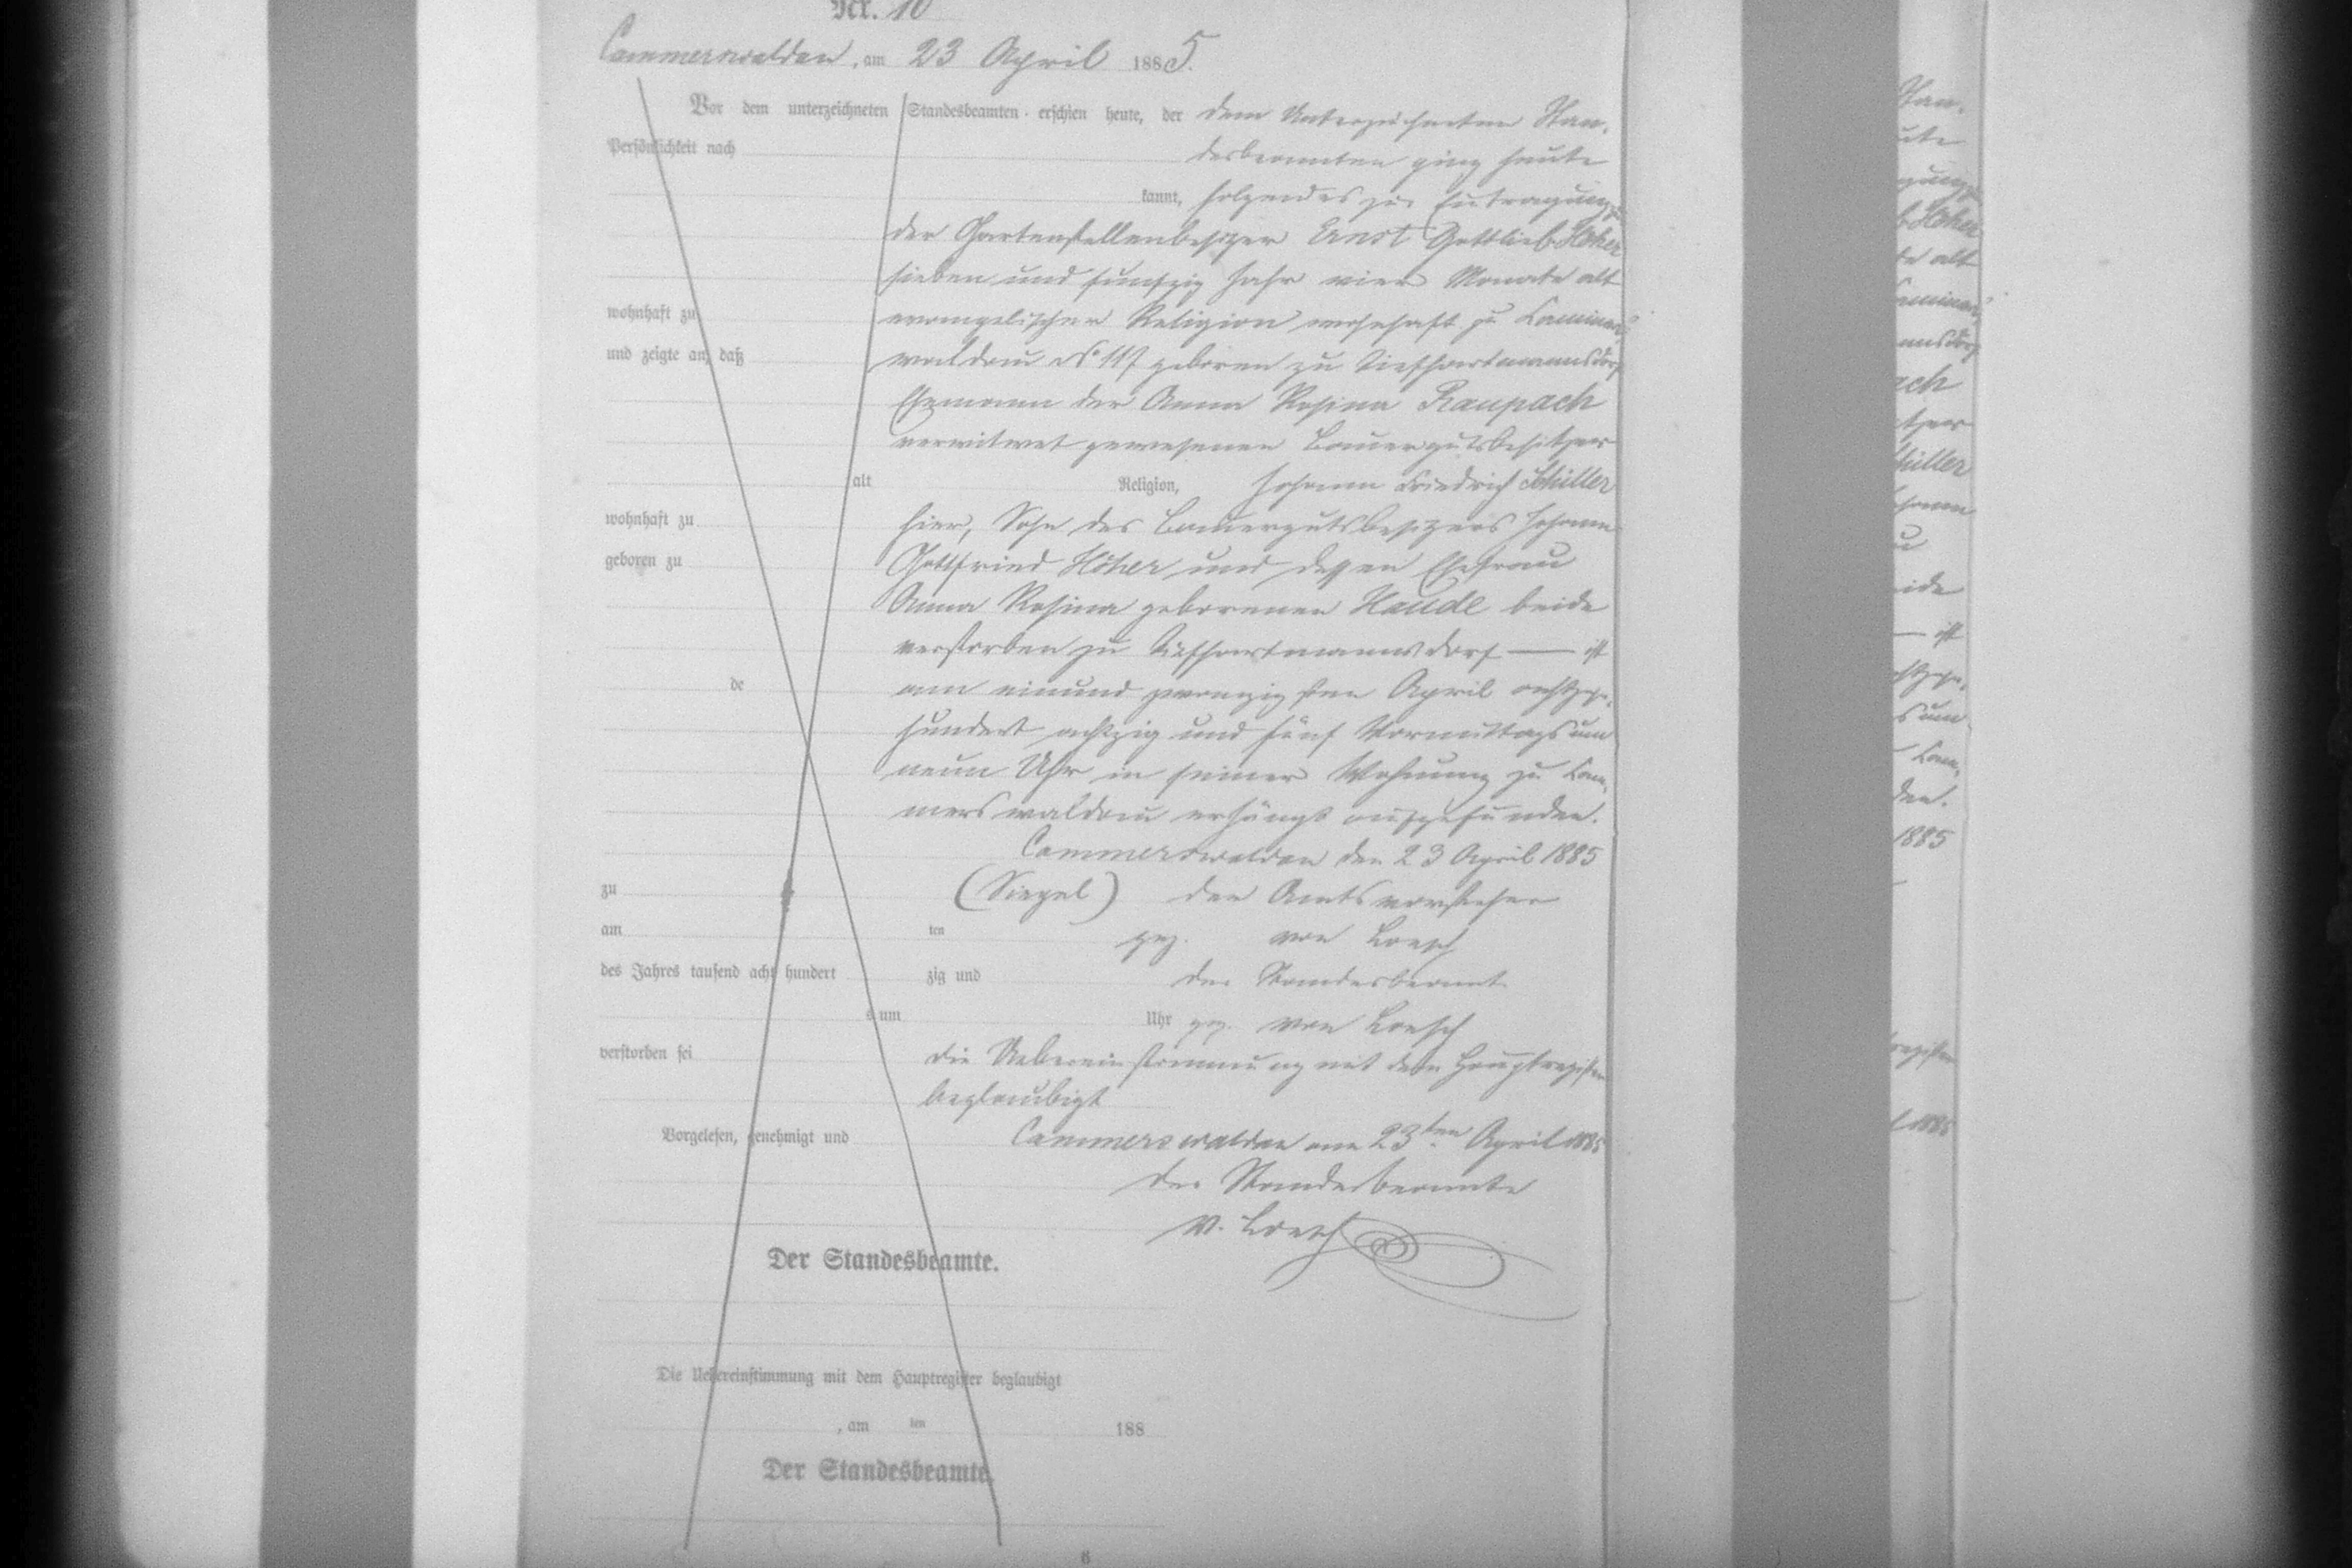 Nr. 10
Cammerswaldau, am 23 April 1885.
Vor dem unterzeichneten Standesbeamten erschien heute, der dem Unterzeichneten Stan-
Persönlichkeit nach desbeamten ging heute
kannt, folgendes zur Eintragung zu
der Gartenstellenbesitzer Ernst Gottlieb Höher
sieben und funfzig Jahr vier Monate alt
wohnhaft zu evangelischer Religion wohnhaft zu Cammers-
und zeigte an, daß waldau No 117 geboren zu Tiefhartmannsdorf
Ehemann der Anna Rosina Raupach
verwitwet gewesenen Bauergutsbesitzer
alt Religion, Johann Friedrich Schüller
wohnhaft zu hier, Sohn des Bauergutsbesitzers Johann
geboren zu Gottfried Höher und dessen Ehefrau
Anna Rosina geborenen Haude beide
verstorben zu Tiefhartmannsdorf — ist
de am einund zwanzigsten April achtzehn-
hundert achtzig und fünf Vormittags um
neun Uhr in seiner Wohnung zu Cam-
merswaldau erhängt aufgefunden.
Cammerswaldau den 23 April 1885
zu (Siegel) der Amtsvorsteher
am ten gez. von Loesch
des Jahres tausend acht hundert zig und der Standesbeamte
s um Uhr gez. von Loesch
verstorben sei die Uebereinstimmung mit dem Hauptregister
beglaubigt
Vorgelesen, genehmigt und Cammerswaldau am 23ten April 1885
Der Standesbeamte
v. Loesch
Der Standesbeamte.
Die Uebereinstimmung mit dem Hauptregister beglaubigt
, am ten 188
Der Standesbeamte.
6